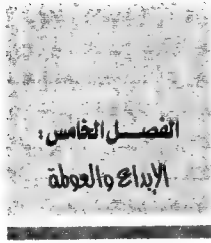 الفصل الخامس :
الإبداع والعولمة